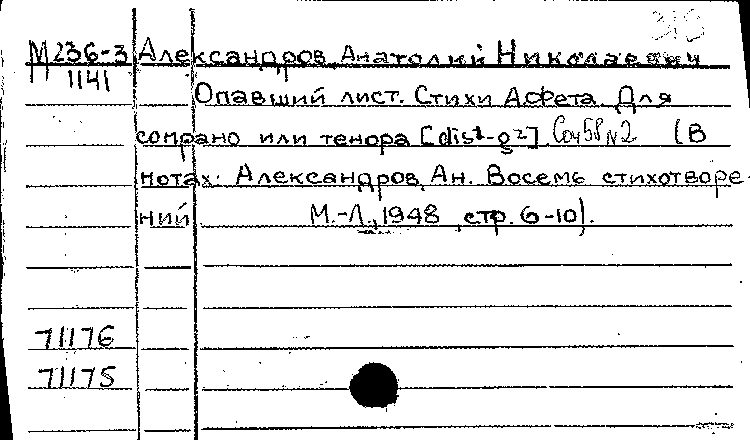 М236-3 Александров, Анатолий Николаевич
1141
Опавший лист. Стихи А.Фета. Для
сопрано или тенора [dis¹-g²] Соч 58 №2 (В
нотах: Александров, Ан. Восемь стихотворе-
ний М.-Л., 1948, стр. 6-10).
71176
71175